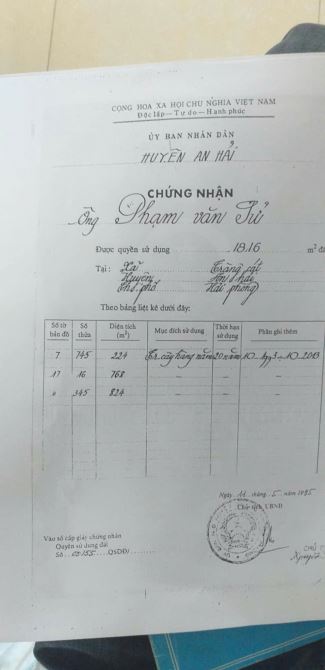 CỘNG HÒA XÃ HỘI CHỦ NGHĨA VIỆT NAM
Độc lập - Tự do - Hạnh phúc
ỦY BAN NHÂN DÂN
HUYỆN AN HẢI
CHỨNG NHẬN
Ông Phạm văn Tử
Được quyền sử dụng 1816 m² đ
Tại: Xã Tràng cát
Huyện An hải
Th. phố Hải phòng
Theo bảng liệt kê dưới đây:
Số tờ bản đồ Số thửa Diện tích (m²) Mục đích sử dụng Thời hạn sử dụng Phần ghi thêm
7 745 224 Tr. cây hàng năm 20 năm 10-2013
17 16 768 – –
345 824 – –
Ngày 11 tháng 5 năm 1995
Chủ tịch UBND
Vào sổ cấp giấy chứng nhận
Quyền sử dụng đất
Số 03155 QSDĐ/
CHỦ T